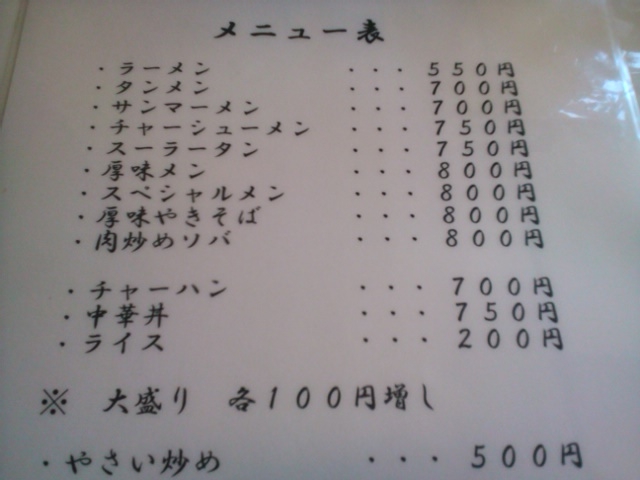 メニュー表
・ラーメン ・・・５５０円
・タンメン ・・・７００円
・サンマーメン ・・・７００円
・チャーシューメン ・・・７５０円
・スーラータン ・・・７５０円
・厚味メン ・・・８００円
・スペシャルメン ・・・８００円
・厚味やきそば ・・・８００円
・肉炒めソバ ・・・８００円
・チャーハン ・・・７００円
・中華丼 ・・・７５０円
・ライス ・・・２００円
※ 大盛り 各１００円増し
・やさい炒め ・・・５００円